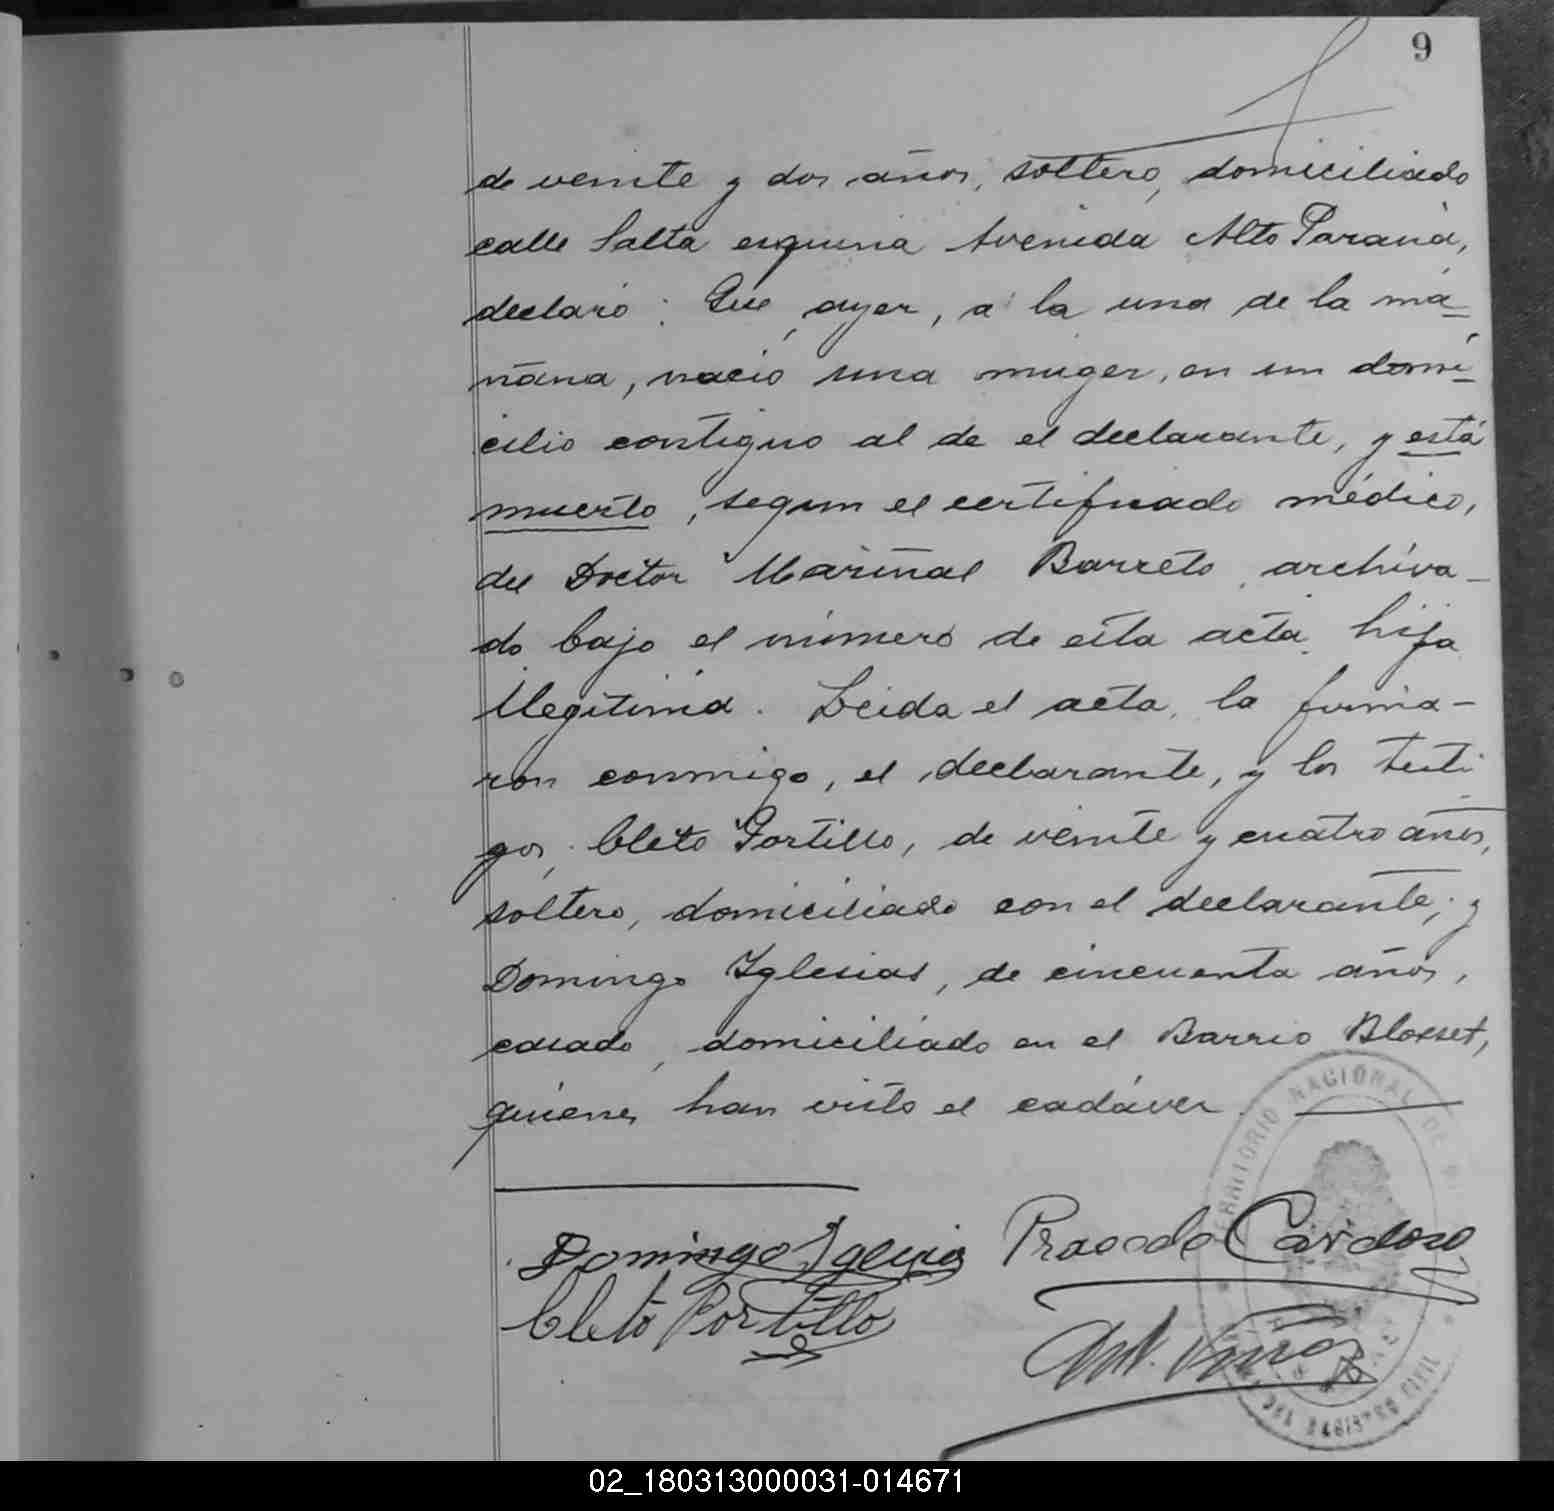 9
de veinte y dos años, soltero, domiciliado
calle Salta esquina Avenida Alto Paraná,
declaró: Que ayer, a la una de la ma-
ñana, nació una muger, en un domi-
cilio contiguo al de el declarante, y está
muerto, segun el certificado médico,
del Doctor Mariñas Barreto, archiva-
do bajo el número de esta acta, hija
Ilegítima. Leida el acta, la firma-
ron conmigo, el declarante, y los testi-
gos, Cleto Portillo, de veinte y cuatro años,
soltero, domiciliado con el declarante; y
Domingo Iglesias, de cincuenta años,
casado, domiciliado en el Barrio Blosset,
quienes han visto el cadáver.
Domingo Iglesias Cardoso
Cleto Portillo
TERRITORIO NACIONAL DE
DEL REGISTRO CIVIL
02_180313000031-014671